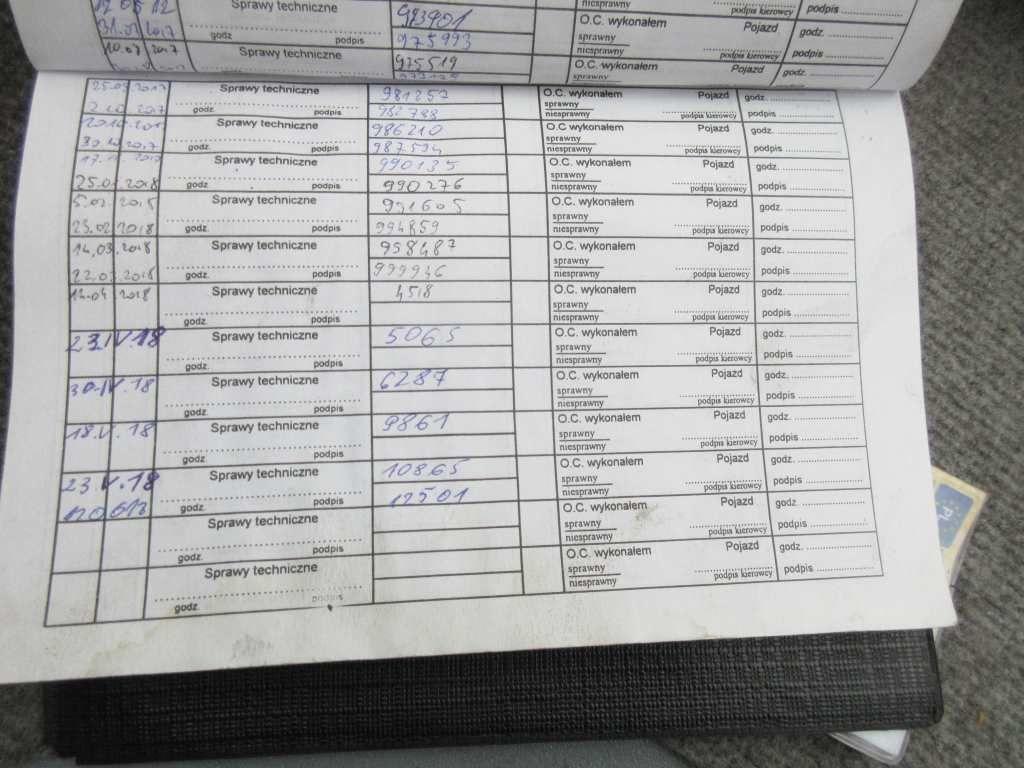 Sprawy techniczne 973901 niesprawny podpis kierowcy podpis
godz podpis 975993 O.C. wykonałem Pojazd godz.
sprawny
10.07 2017 Sprawy techniczne 975519 niesprawny podpis kierowcy podpis
O.C. wykonałem Pojazd godz.
25.09.2017 Sprawy techniczne 981257 O.C. wykonałem Pojazd godz.
sprawny
godz. podpis 982788 niesprawny podpis kierowcy podpis
Sprawy techniczne 986210 O.C wykonałem Pojazd godz.
sprawny
30.10.2017 godz. podpis 987594 niesprawny podpis kierowcy podpis
Sprawy techniczne 990135 O.C. wykonałem Pojazd godz.
sprawny
25.01.2018 godz podpis 990276 niesprawny podpis kierowcy podpis
5.02.2018 Sprawy techniczne 991605 O.C. wykonałem Pojazd godz.
sprawny
23.02.2018 godz. podpis 994859 niesprawny podpis kierowcy podpis
14,03.2018 Sprawy techniczne 998487 O.C. wykonałem Pojazd godz.
sprawny
22.03.2018 godz. podpis 999946 niesprawny podpis kierowcy podpis
12.04 2018 Sprawy techniczne 4518 O.C. wykonałem Pojazd godz.
sprawny
godz. podpis niesprawny podpis kierowcy podpis
23.IV.18 Sprawy techniczne 5065 O.C. wykonałem Pojazd godz.
sprawny
godz. podpis niesprawny podpis kierowcy podpis
30.IV.18 Sprawy techniczne 6287 O.C. wykonałem Pojazd godz.
sprawny
godz. podpis niesprawny podpis kierowcy podpis
18.V.18 Sprawy techniczne 9861 O.C. wykonałem Pojazd godz.
sprawny
godz. podpis niesprawny podpis kierowcy podpis
23.V.18 Sprawy techniczne 10865 O.C. wykonałem Pojazd godz.
sprawny
godz. podpis 12501 niesprawny podpis kierowcy podpis
Sprawy techniczne O.C. wykonałem Pojazd godz.
sprawny
godz. podpis niesprawny podpis kierowcy podpis
Sprawy techniczne O.C. wykonałem Pojazd godz.
sprawny
godz. podpis niesprawny podpis kierowcy podpis
PL